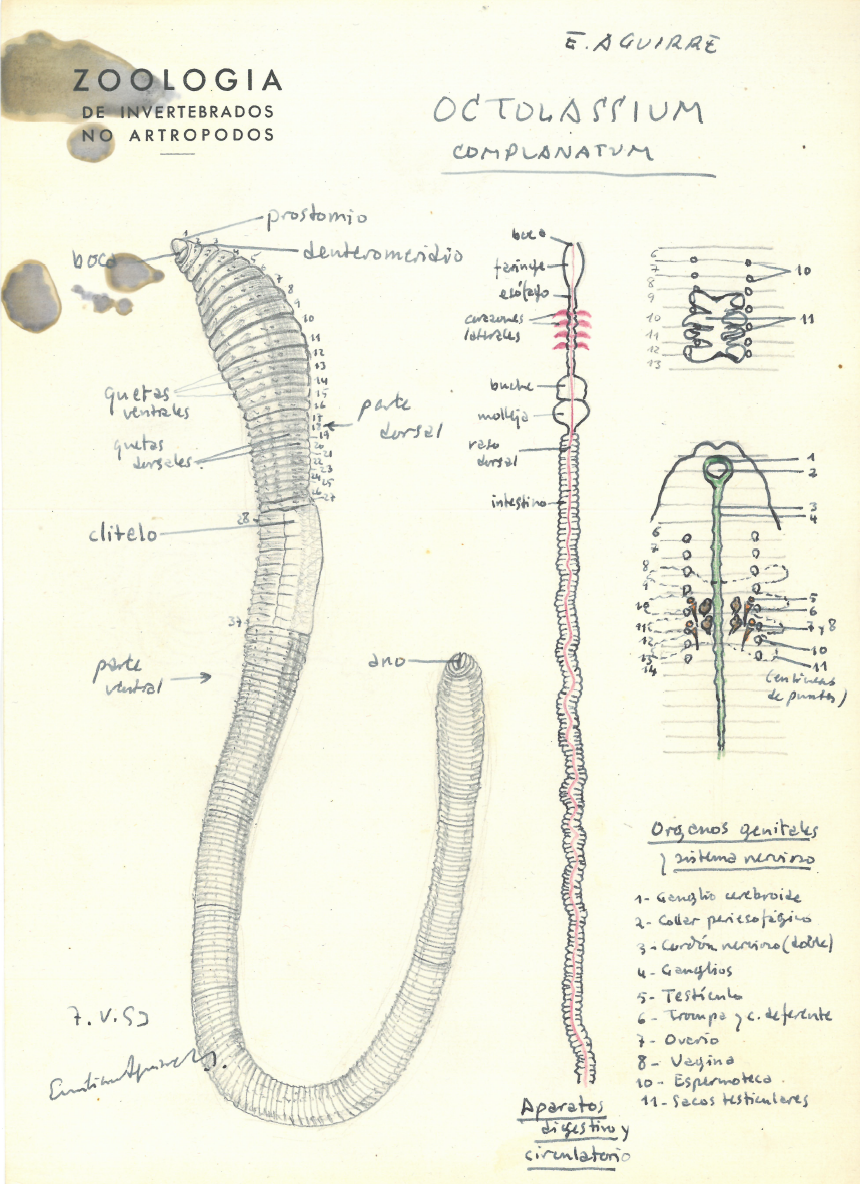 E. AGUIRRE
ZOOLOGIA
DE INVERTEBRADOS
NO ARTROPODOS
OCTOLASSIUM
COMPLANATUM
prostomio
boca
deuteromeridio
1
2
3
5
6
7
8
9
10
11
12
13
14
15
16
17
18
19
20
21
22
23
24
25
26
27
quetas
ventrales
parte
dorsal
quetas
dorsales
28
clitelo
37
parte
ventral
ano
7.V.53
boca
faringe
esófago
corazones
laterales
buche
molleja
vaso
dorsal
intestino
Aparatos
digestivo y
circulatorio
6
7
8
9
10
11
12
13
10
11
1
2
3
4
6
7
8
9
10
11
12
13
14
5
6
7 y 8
10
11
(en líneas
de puntos)
Organos genitales
y sistema nervioso
1- Ganglio cerebroide
2- Collar periesofágico
3- Cordón nervioso (doble)
4- Ganglios
5- Testículo
6- Trompa y c. deferente
7- Ovario
8- Vagina
10- Espermoteca
11- Sacos testiculares